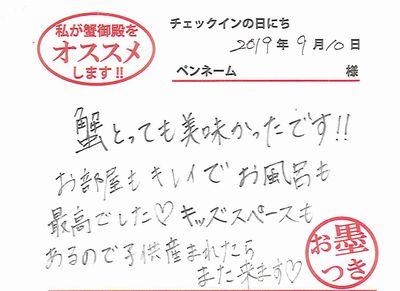 私が蟹御殿を
オススメ
します!!
チェックインの日にち
2019年9月10日
ペンネーム 様
蟹とっても美味かったです!!
お部屋もキレイでお風呂も
最高でした♡キッズスペースも
あるので子供産まれたら
また来ます♡
お墨
つき